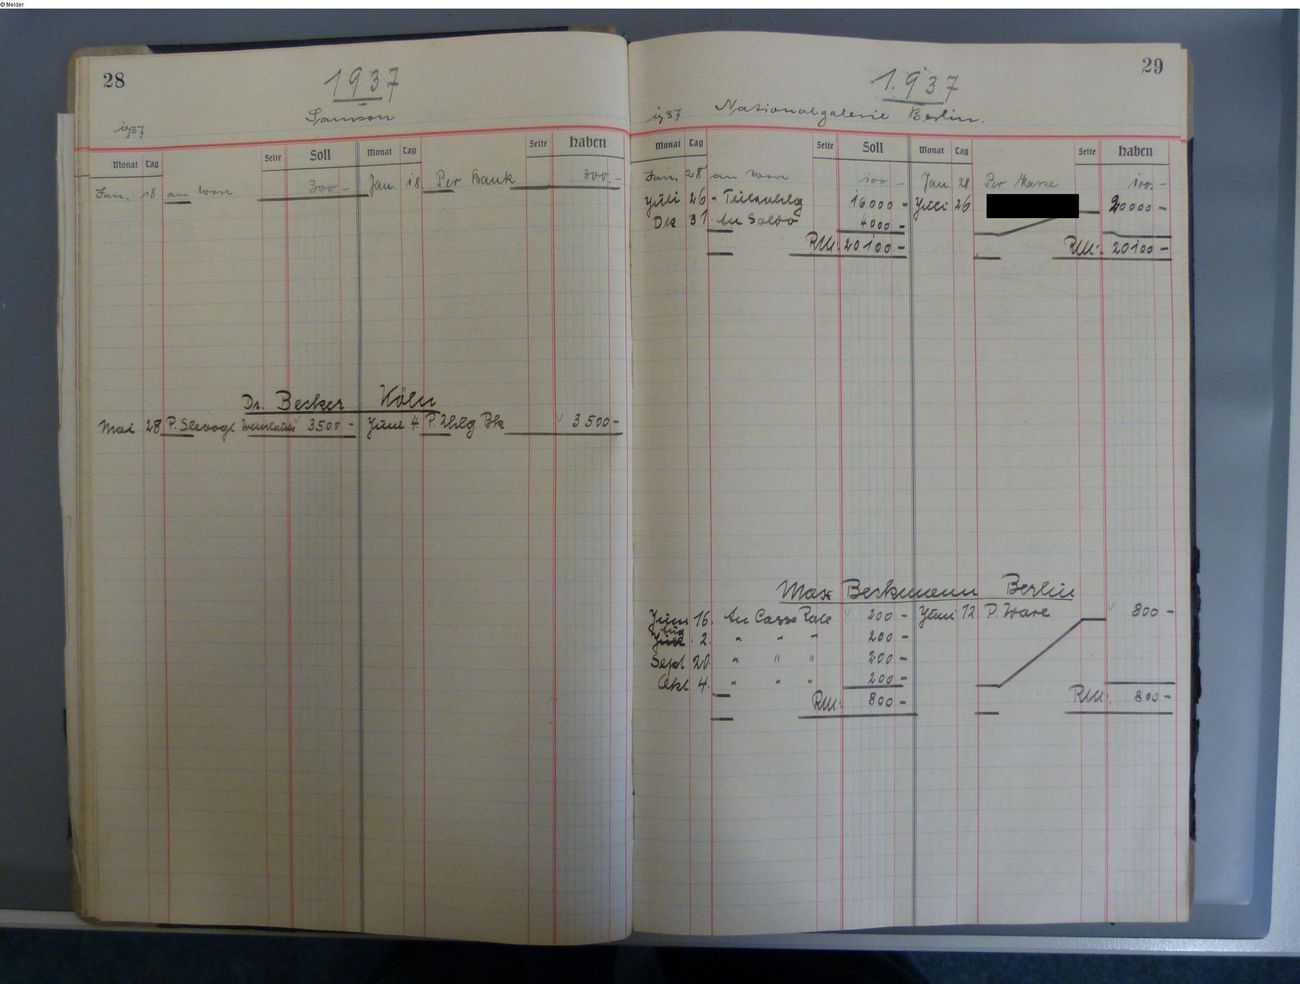 © Melder
28
1937
Samson
1937
Monat Tag Seite Soll Monat Tag Seite Haben
Jan. 18 an Ware 300.- Jan. 18 Per Bank 300.-
Dr. Becker Köln
Mai 28 P. Slevogt 3500- Juni 4 P. Zhlg Bk 3500-
29
1937
1937 Nationalgalerie Berlin.
Monat Tag Seite Soll Monat Tag Seite Haben
Jan. 28 an Ware 100.- Jan. 28 Per Kasse 100.-
Juli 26 - 16000- Juli 26 20000-
Dez 31 An Saldo 4000-
RM: 20100- RM: 20100-
Max Beckmann Berlin
Juni 16. An Cassa Rate 200- Juni 12 P. Ware 800-
Aug 2. " " " 200-
Sept 20. " " " 200-
Okt 4. " " " 200-
RM: 800- RM: 800-